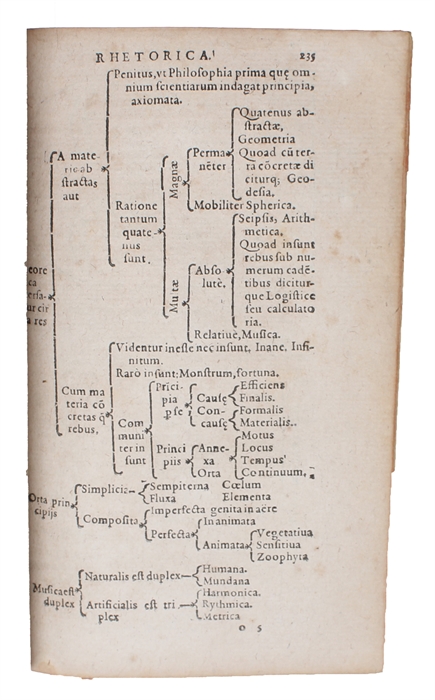 RHETORICA. 235
Penitus, vt Philosophia prima quę om-
nium scientiarum indagat principia,
axiomata.
A mate-
ria ab
stractas
aut
Ratione
tantum
quate-
nus
sunt.
Magnæ
Perma
nẽter
Quatenus ab-
stractæ,
Geometria
Quoad cũ ter-
ra cõcretæ di
citurq; Geo-
desia.
Mobiliter Spherica.
Mu tæ
Abso
lutè.
Seipsis, Arith-
metica.
Quoad insunt
rebus sub nu-
merum cadẽ-
tibus dicitur-
que Logistice
seu calculato
ria.
Relatiuè, Musica.
eore
ca
ersa-
ur cir
a res
Cum ma
teria cõ
cretas q̃
rebus.
Videntur inesse nec insunt. Inane. Infi-
nitum.
Rarò insunt: Monstrum, fortuna.
Com
muni
ter in
sunt
Prici-
pia
pse
Causę
Efficiens
Finalis.
Con-
causę
Formalis
Materialis..
Princi
piis
Anne-
xa
Orta
Motus
Locus
Tempus
Continuum.
Orta prin-
cipijs
Simplicia-
Sempiterna Cœlum
Fluxa Elementa
Composita
Imperfecta genita in aëre
Perfecta
Inanimata
Animata
Vegetatiua
Sensitiua
Zoophyta
Musica est
duplex
Naturalis est duplex
Humana.
Mundana
Artificialis est tri
plex
Harmonica.
Rythmica.
Metrica
O 5